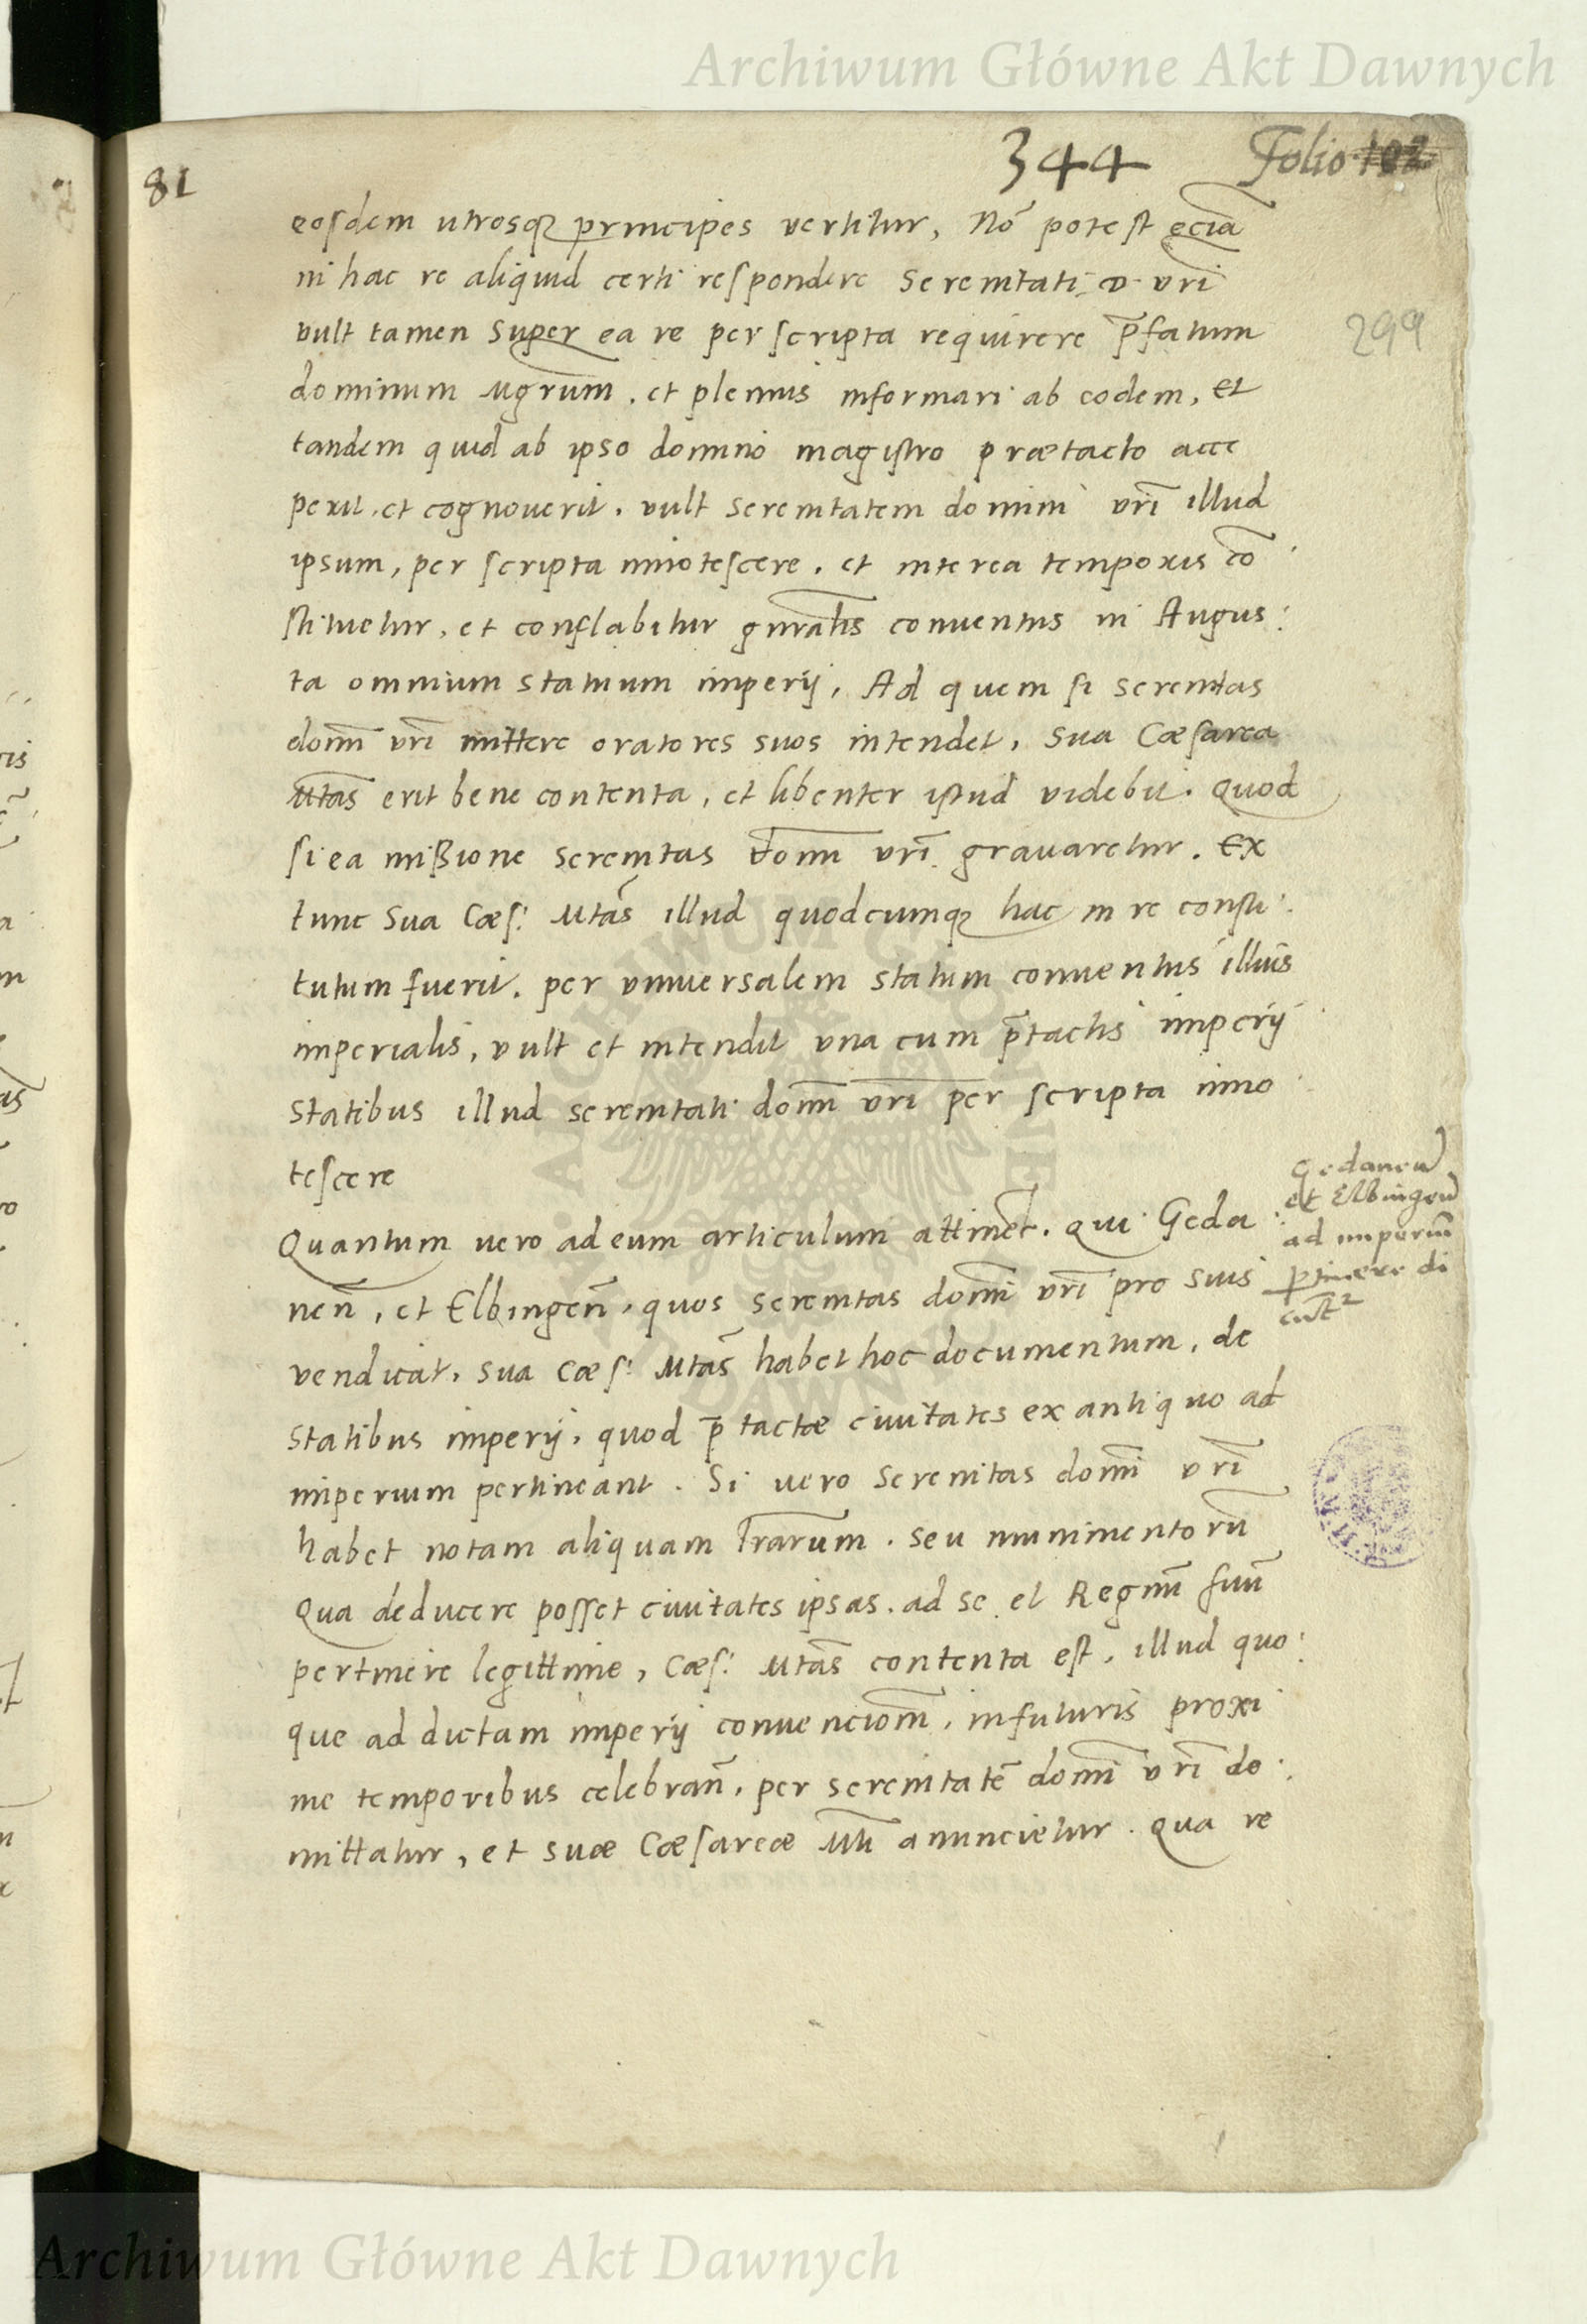 Archiwum Główne Akt Dawnych
344 Folio 102
81
eosdem utrosq3 principes vertitur, Nō potest eciā
in hac re aliquid certi respondere Serenitati d. vrī
vult tamen super ea re per scripta requirere p̄fatum
299
dominum Mgrum̄. et plenius informari ab eodem, et
tandem quid ab ipso domino magistro prætacto acce
perit. et cognoverit. vult serenitatem domini vrī illud
ipsum, per scripta innotescere. et interea temporis cō
stituetur, et conflabitur gnral̄is conventus in Augus:
ta omnium statuum imperij, Ad quem si serenitas
domī vrī mittere oratores suos intendet, sua Cæsarea
Mtās erit bene contenta, et libenter istud videbit. Quod
si ea mißione serenitas domī vrī gravaretur. Ex
tunc sua Cæs: Mtās illud quodcumq3 hac in re consti:
tutum fuerit. per universalem statum conventus illius
imperialis, vult et intendit una cum p̄tactis imperij
statibus illud serenitati domī vrī per scripta inno
tescere
Quantum vero ad eum articulum attinet. qui Geda:
nen̄, et Elbingen̄, quos serenitas domī vrī pro suis
vendicat, sua Cæs: Mtās habet hoc documentum, de
Gedanen̄
et Elbingen̄
ad imperiū
p̄tinere di
statibus imperij, quod p̄tactæ civitates ex antiquo ad
imperium pertineant. Si vero Serenitas domī vrī
habet notam aliquam l̄rarum. seu munimentorū
Qua deducere posset civitates ipsas. ad se et Regnū suū
pertinere legittime, Cæs: Mtās contenta est, illud quo:
que ad dictam imperij convencionē, in futuris proxi
me temporibus celebran̄, per serenitatē domī vrī de:
mittatur, et suæ Cæsareæ Mti anuncietur. Qua re
Archiwum Główne Akt Dawnych